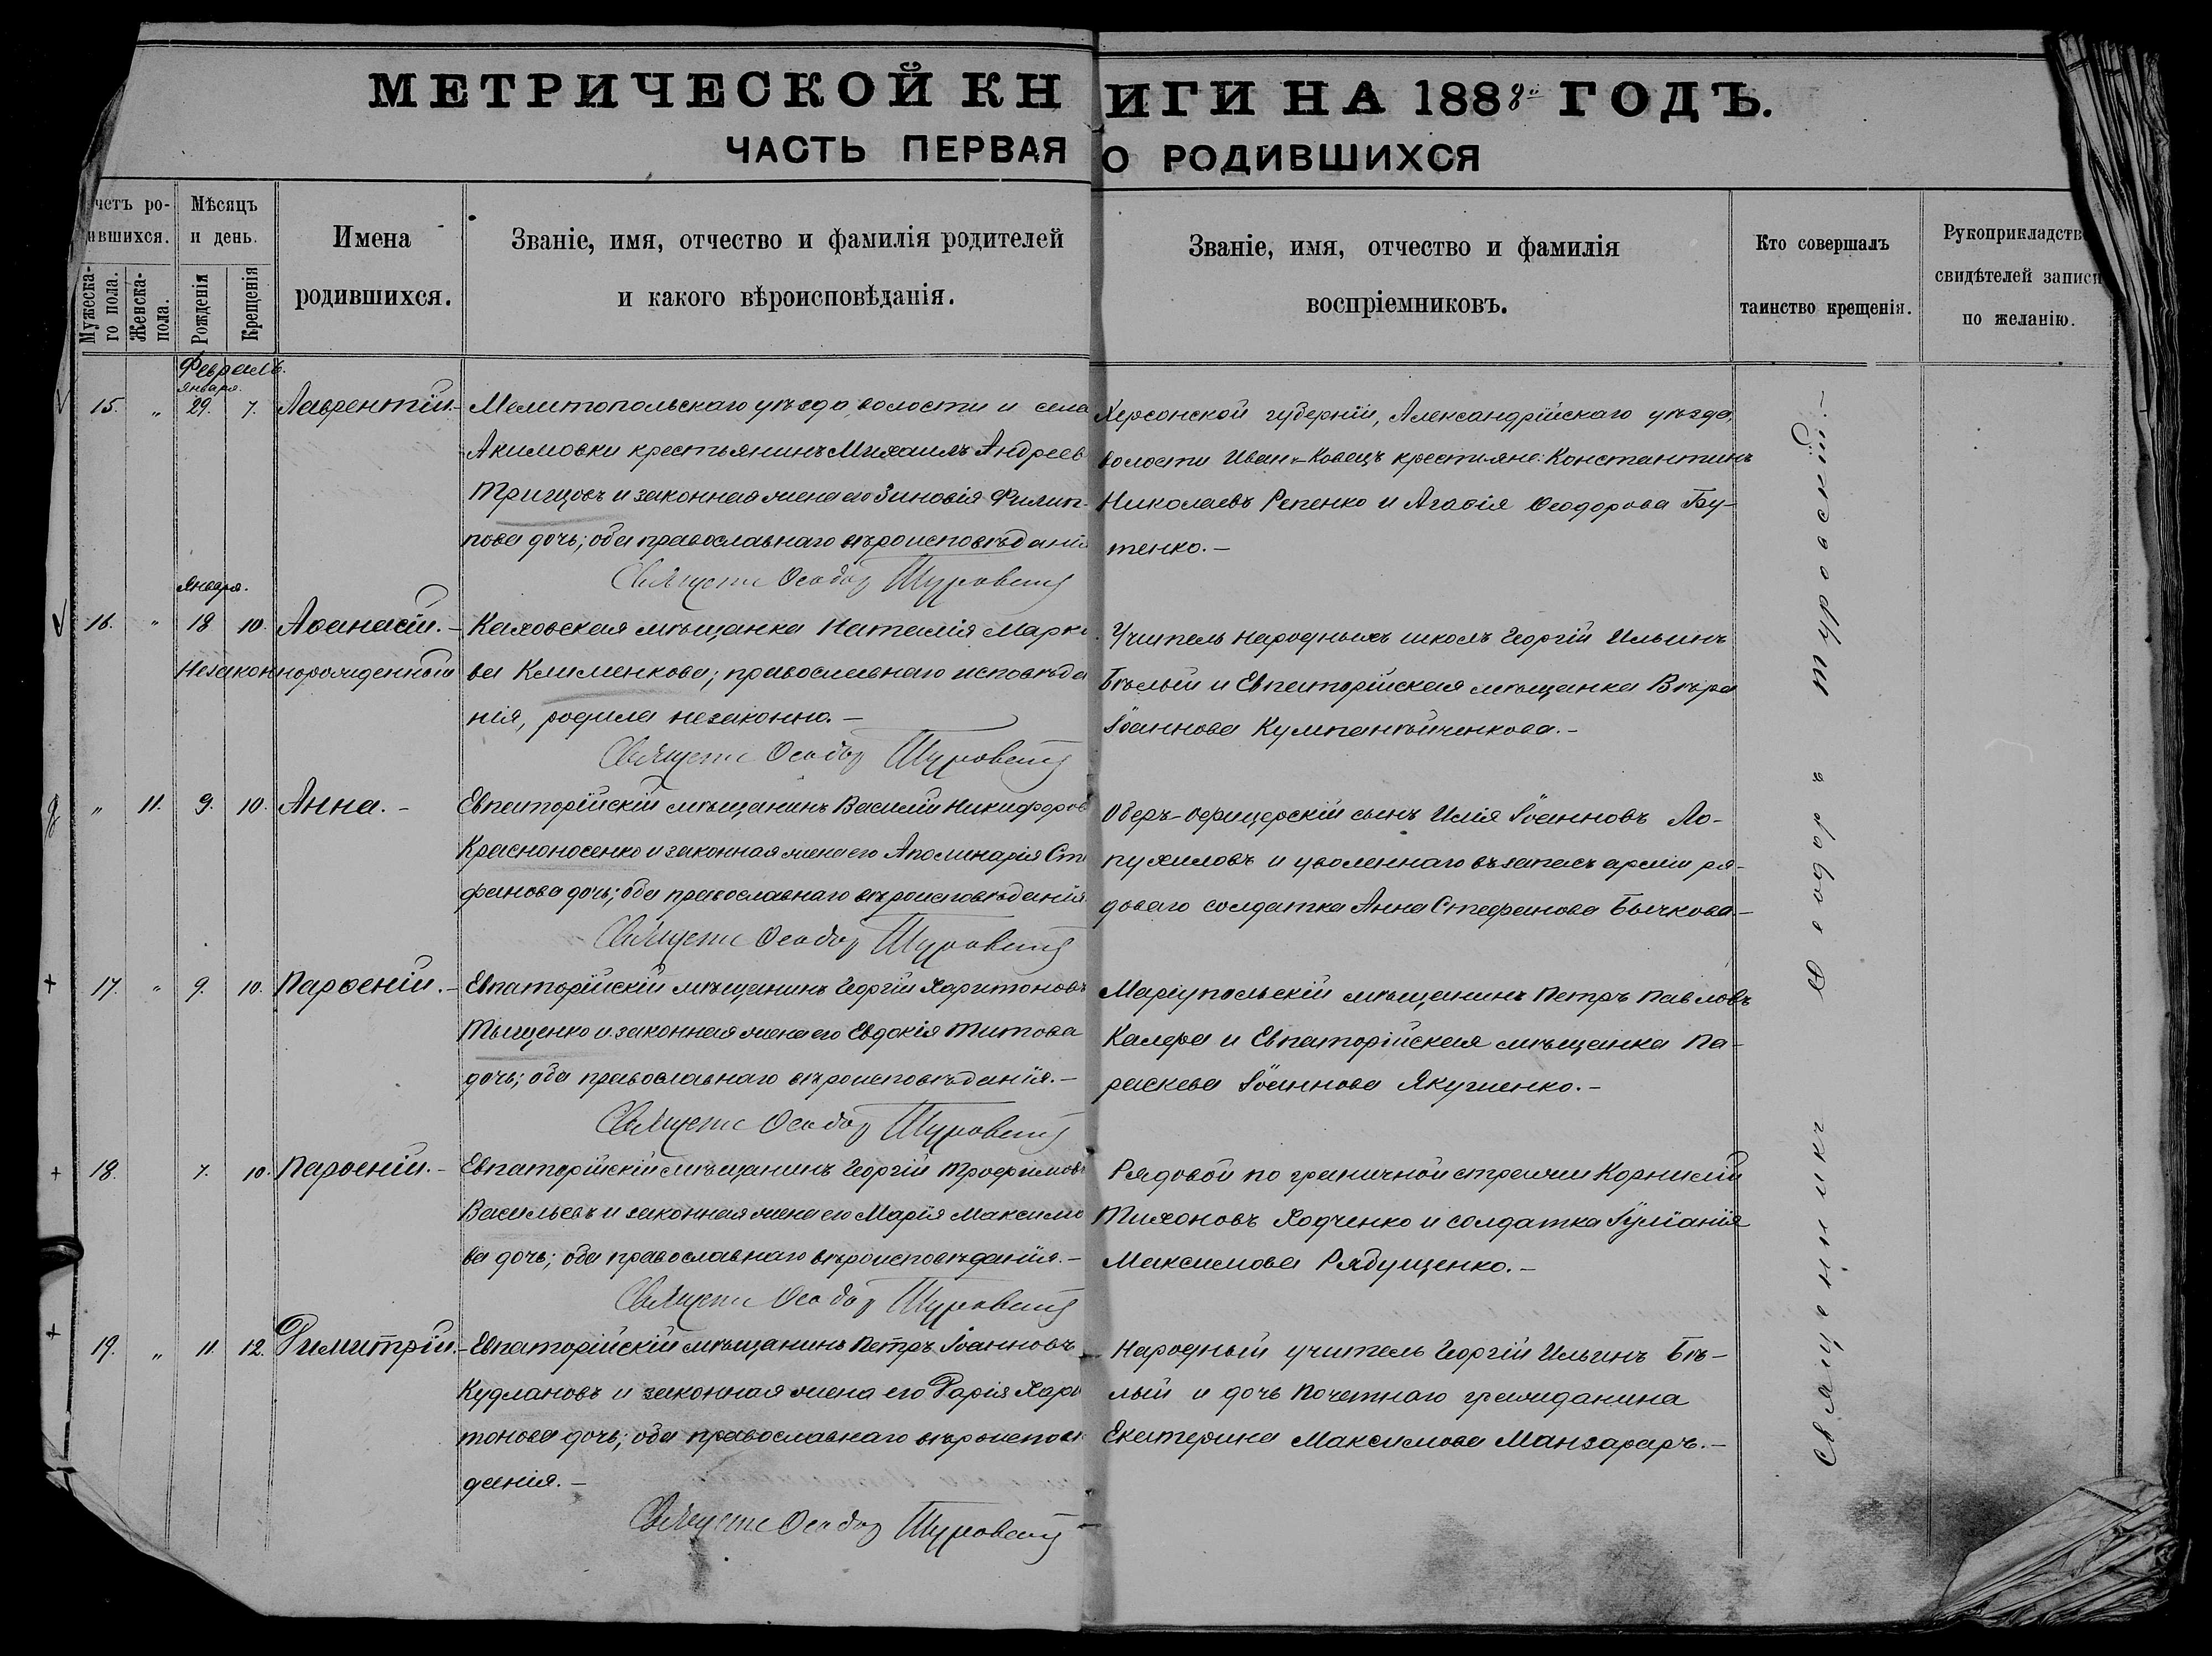 МЕТРИЧЕСКОЙ КНИГИ НА 1888й ГОДЪ.
ЧАСТЬ ПЕРВАЯ О РОДИВШИХСЯ
четъ ро-
ившихся.
Мужеска-
го пола.
Женска-
пола.
Мѣсяцъ
и день.
Рожденія
Крещенія
Имена
родившихся.
Званіе, имя, отчество и фамилія родителей
и какого вѣроисповѣданія.
Званіе, имя, отчество и фамилія
воспріемниковъ.
Кто совершалъ
таинство крещенія.
Рукоприкладств
свидѣтелей записи
по желанію.
Февраль.
Января.
15. " 29. 7. Лаврентій.-
Мелитопольскаго уѣзда, волости и села
Акимовки крестьянинъ Михаилъ Андреев
и законная жена его Зиновія Филип-
пова дочь; оба православнаго вѣроисповѣданія
Священ Ѳеодор Туровскій
Херсонской губерніи, Александрійскаго уѣзда,
волости крестьяне: Константинъ
Николаевъ Репенко и Агафія Ѳеодорова Бу-
тенко.-
Января.
16. " 18 10. Аѳанасій.-
Незаконнорожденный
Каховская мѣщанка Наталія Марко
ва Клименкова; православнаго исповѣда
нія, родила незаконно.-
Священ Ѳеодор Туровскій
Учитель народныхъ школъ Георгій Ильинъ
Бѣлый и Евпаторійская мѣщанка Вѣра
Іоаннова
" 11. 9. 10. Анна.-
Евпаторійскій мѣщанинъ Василій Никифоров
Красноносенко и законная жена его Аполинарія Сте
фанова дочь; оба православнаго вѣроисповѣданія.
Священ Ѳеодор Туровскій
Оберъ-офицерскій сынъ Илія Іоанновъ Ло-
пухиловъ и уволеннаго въ запасъ арміи ря-
доваго солдатка Анна Стефанова Бычкова.-
17. " 9. 10. Парѳеній.-
Евпаторійскій мѣщанинъ Георгій Харитоновъ
Тыщенко и законная жена его Евдокія Титова
дочь; оба православнаго вѣроисповѣданія.-
Священ Ѳеодор Туровскій
Маріупольскій мѣщанинъ Петръ Павловъ
Калера и Евпаторійская мѣщанка Па-
раскева Іоаннова Якушенко.-
18. 7. 10. Парѳеній.-
Евпаторійскій мѣщанинъ Георгій Трофимовъ
Васильевъ и законная жена его Марія Максимо
ва дочь; оба православнаго вѣроисповѣданія.-
Священ Ѳеодор Туровскій
Рядовой по граничной стражи Корнилій
Тихоновъ Ходченко и солдатка Іуліанія
Максимова Рябущенко.-
19. " 11. 12. Димитрій.-
Евпаторійскій мѣщанинъ Петръ Іоанновъ
Кудлановъ и законная жена его Дарія Хари
тонова дочь; оба православнаго вѣроисповѣ
данія.-
Священ Ѳеодор Туровскій
Народный учитель Георгій Ильинъ Бѣ-
лый и дочь почетнаго гражданина
Екатерина Максимова Манзараръ.-
Священникъ Ѳеодоръ Туровскій.-